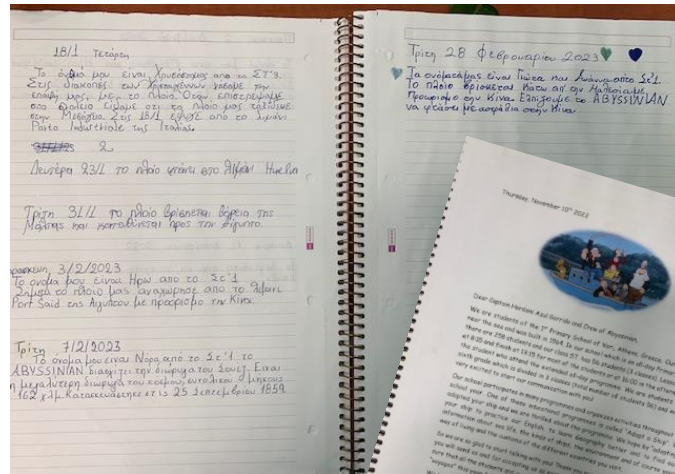 18/1 Τετάρτη
Το όνομά μου είναι Χρυσόστομος από το ΣΤ'3.
Στις διακοπές των Χριστουγέννων χάσαμε την
επαφή μας, με το πλοίο. Όταν επιστρέψαμε
στο σχολείο είδαμε ότι το πλοίο μας ταξίδευε
στην Μεσόγειο. Στις 18/1 έφυγε από το λιμάνι
Porto Industriale της Ιταλίας.
2
Δευτέρα 23/1 το πλοίο φτάνει στο λιμάνι Huelva
Τρίτη 31/1 το πλοίο βρίσκεται βόρεια της
Μάλτας και κατευθύνεται προς την Αίγυπτο.
3/2/2023
Το όνομα μου είναι Ηρώ από το Στ'1
το πλοίο μας αναχώρησε από το λιμάνι
Port Said της Αιγύπτου με προορισμό την Κίνα.
Τρίτη 7/2/2023
Το όνομα μου είναι Νόρα από το Στ'1 το
ABYSSINIAN διασχίζει την διώρυγα του Σουέζ. Είναι
η μεγαλύτερη διώρυγα του κόσμου, συνολικού μήκους
162 χλμ. Κατασκευάστηκε στις 25 Σεπτεμβρίου 1859
Τρίτη 28 Φεβρουαρίου 2023
Τα ονόματά μας είναι Γιώτα και Ιωάννα από το Στ'1.
Το πλοίο βρίσκεται κάτω απ' την Μαλαισία με
προορισμό την Κίνα. Ελπίζουμε το ABYSSINIAN
να φτάσει με ασφάλεια στην Κίνα.
Thursday, November 10th 2022
Dear Captain Mariano Azul Garrido and Crew of Abyssinian,
We are students of the 1st Primary School of Vari, Athens, Greece. Our
near the sea and was built in 1964. In our school which is an all-day Primary
there are 258 students and our class ST' has 56 students
at 8:15 and finish at 13:15 for most of the students or at 16:00 in the afternoon
the student who attend the extended all-day programme. We are students
sixth grade which is divided in 3 classes (total number of students 56) and we
very excited to start our conversation with you!
Our school participates in many programmes and organizes activities throughout
school year. One of these educational programmes is called "Adopt a Ship".
adopted your ship and we are thrilled about the programme. We hope by "adopting
your ship to practice our English, to learn Geography better and to find out
information about sea life, the kinds of ships, the environment and of course your
way of living and the customs of the different countries
So we are so glad to start talking with you!